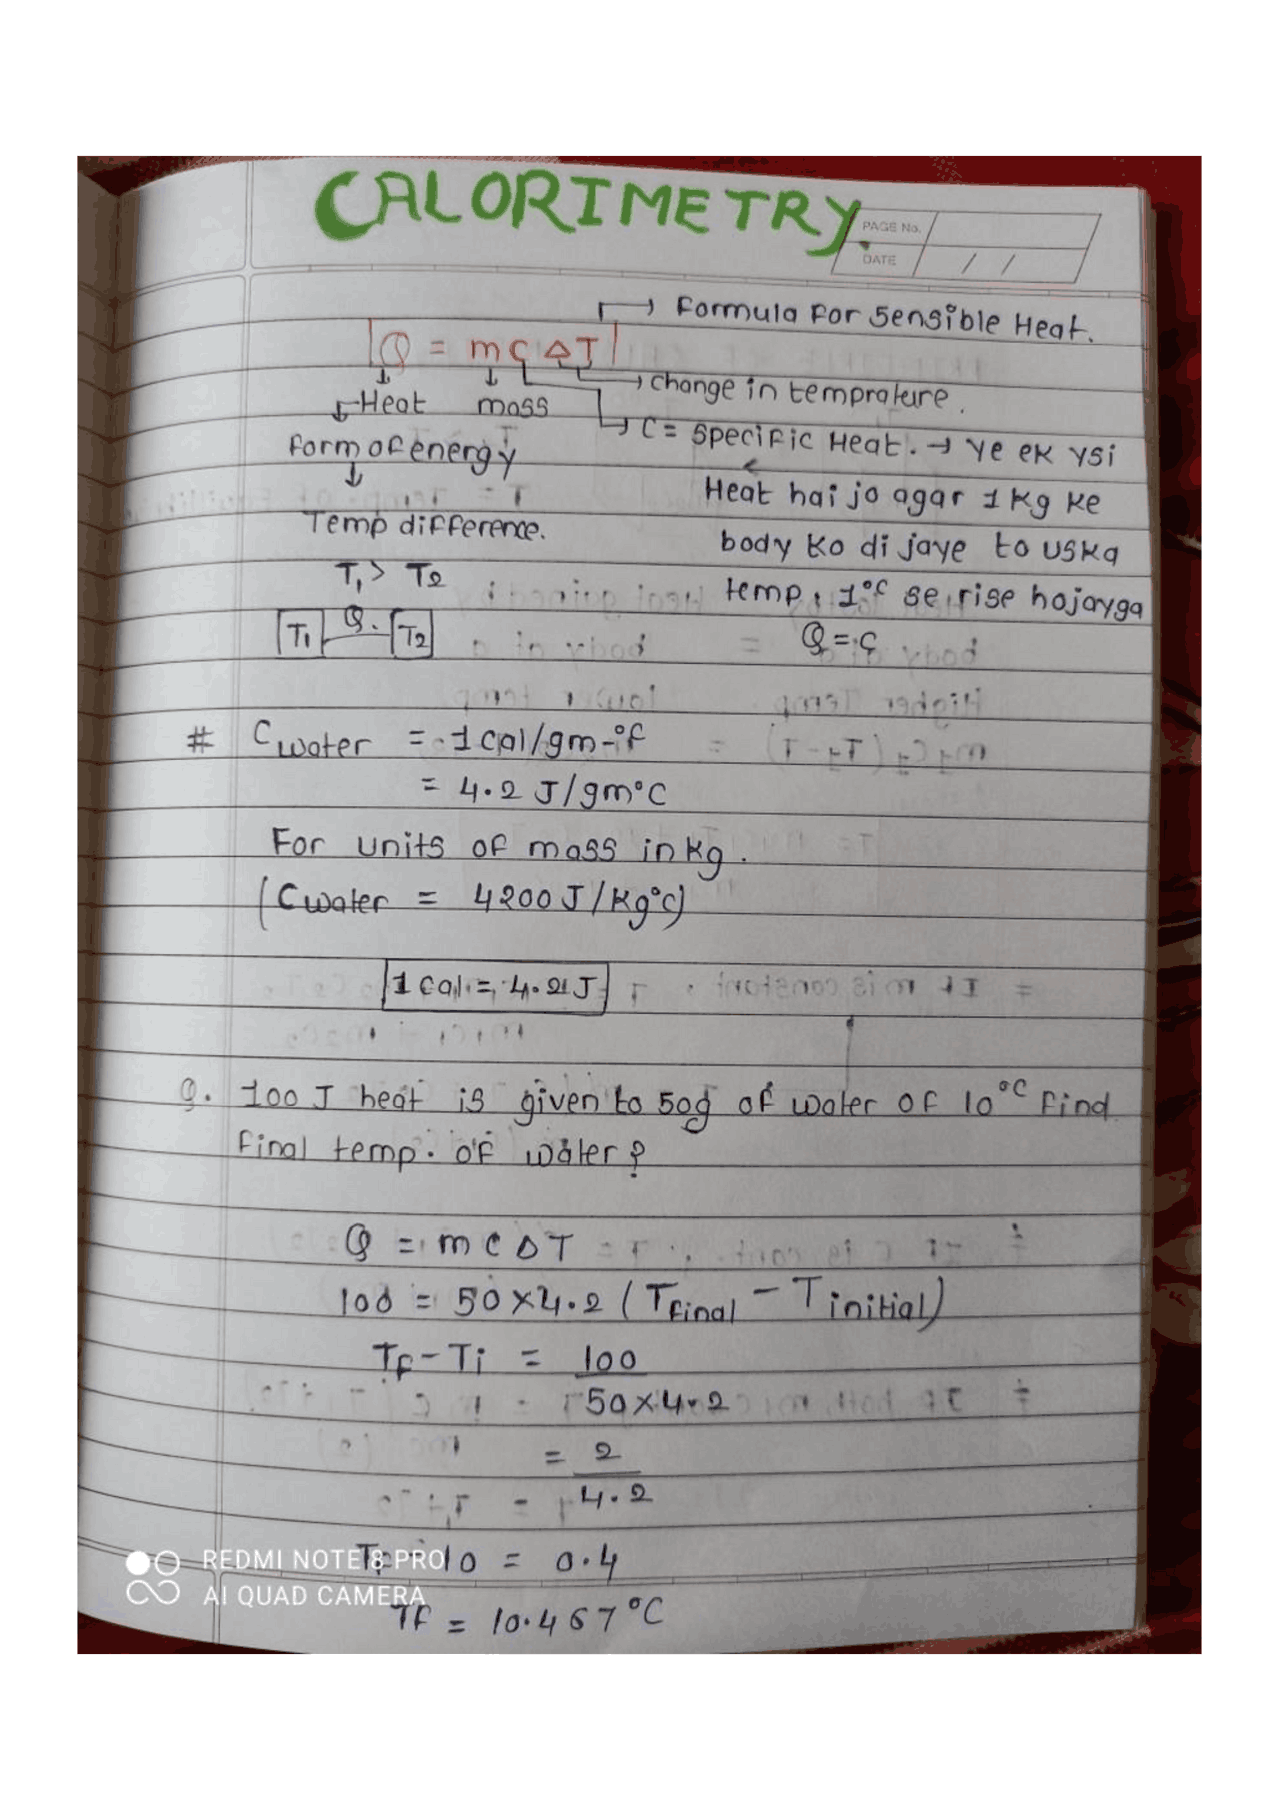 CALORIMETRY
PAGE No.
DATE / /
Formula For Sensible Heat.
Q = mC∆T
Change in temprature.
Heat mass
C = Specific Heat. → Ye ek ysi
Form of energy
Heat hai jo agar 1 Kg ke
Temp difference.
body ko di jaye to uska
T₁ > T₂
temp. 1°C se rise hojayga
T₁ Q. T₂
Q = C
# Cwater = 1 Cal/gm-°f
= 4.2 J/gm°C
For units of mass in kg.
(Cwater = 4200 J/Kg°C)
1 Cal = 4.21 J
Q. 100 J heat is given to 50g of water of 10°C Find
Final temp. of water?
Q = mC∆T
100 = 50×4.2 (TFinal - Tinitial)
TF - Ti = 100
50×4.2
= 2
4.2
10 = 0.4
TF = 10.467°C
REDMI NOTE 8 PRO
AI QUAD CAMERA